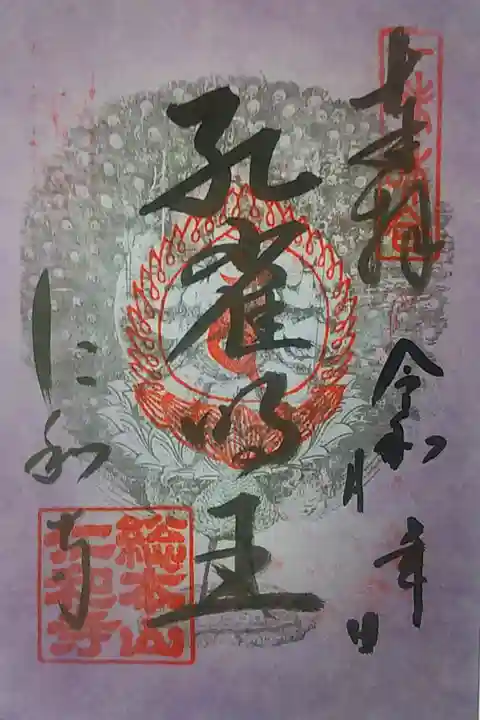 奉拝
令和 年
月 日
孔雀明王
仁和寺
総本山
仁和寺